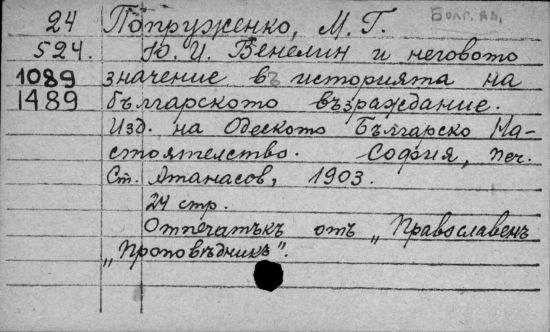 24 Попруженко, М. Г. Болг. яз.
524. Ю. И. Венелин и неговото
1089 значение въ историята на
1489 българското възраждание.
Изд. на Одеското Българско На-
стоятелство. София, печ.
Ст. Атанасов, 1903.
24 стр.
Отпечатъкъ отъ „Православенъ
„Проповѣдникъ".